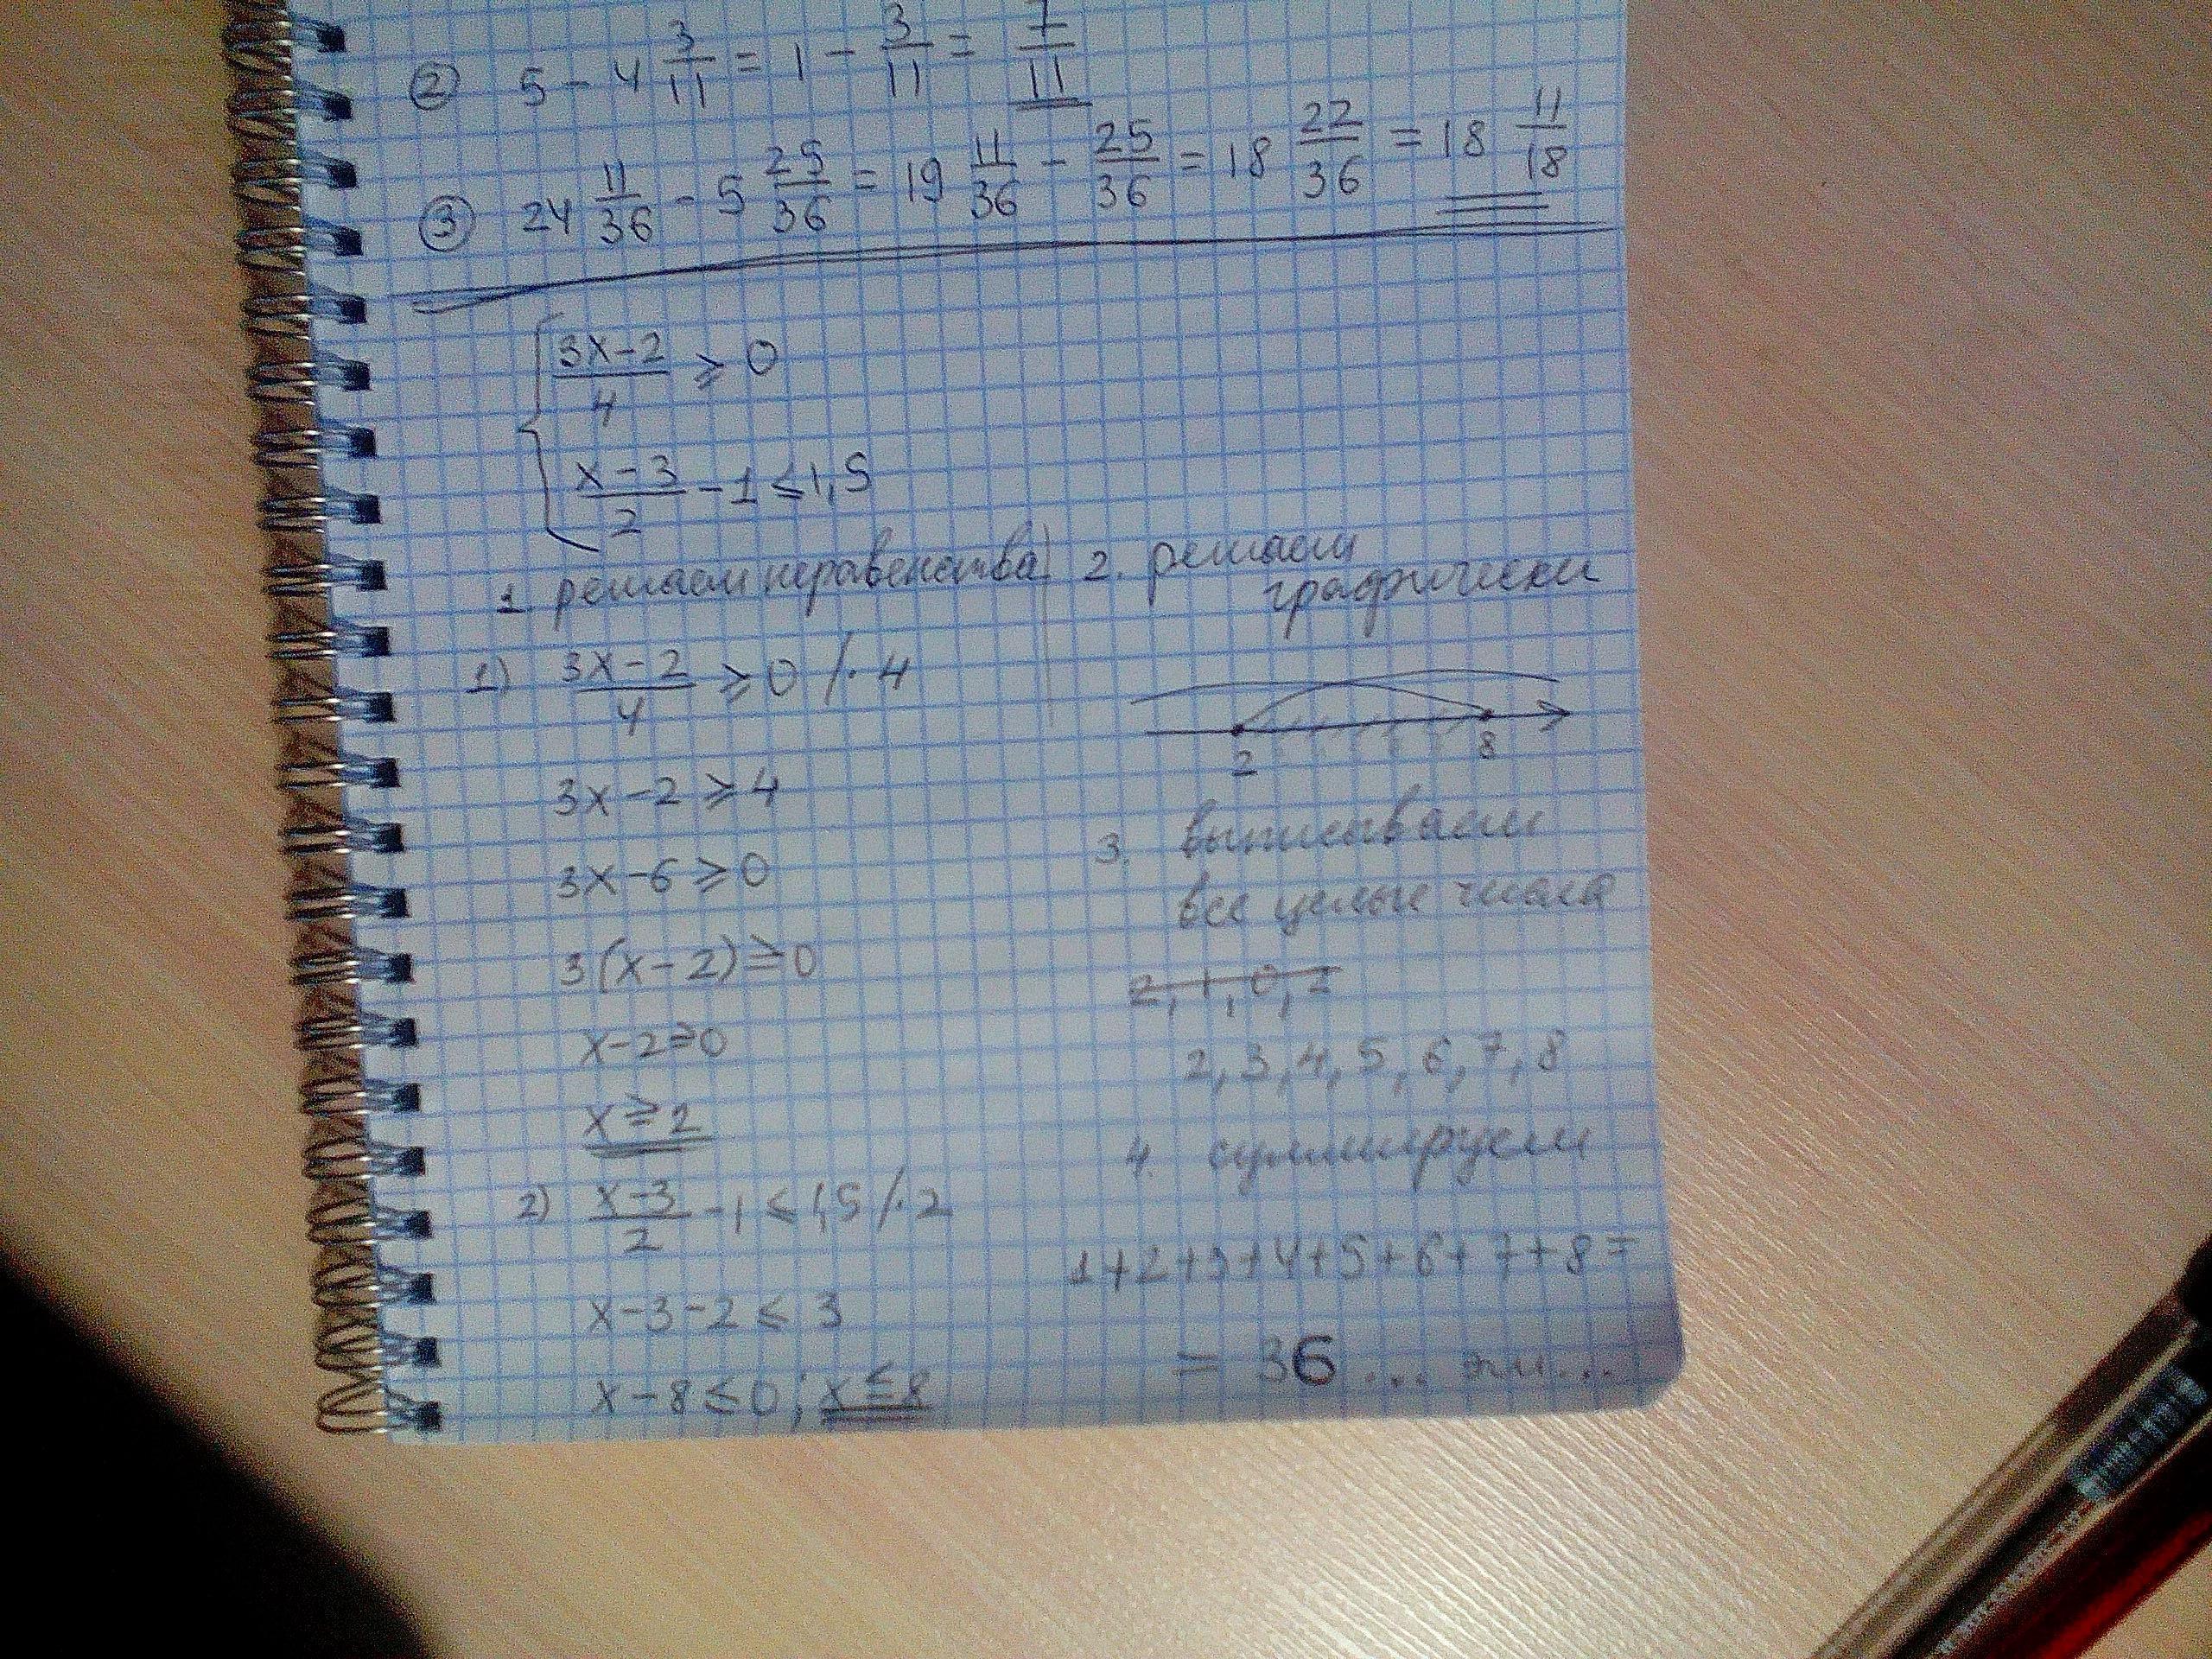 ② 5 - 4 3/11 = 1 - 3/11 = 7/11
③ 24 11/36 - 5 25/36 = 19 11/36 - 25/36 = 18 22/36 = 18 11/18
{ (3x-2)/4 ⩾ 0
(x-3)/2 - 1 ≤ 1,5
1. решаем неравенства
1) (3x-2)/4 ⩾ 0 /· 4
3x-2 ⩾ 4
3x-6 ⩾ 0
3(x-2) ⩾ 0
x-2 ⩾ 0
x ⩾ 2
2) (x-3)/2 - 1 ≤ 1,5 /· 2
x-3-2 ≤ 3
x-8 ≤ 0; x ≤ 8
2. решаем
графически
2 8
3. выписываем
все целые числа
2, 3, 4, 5, 6, 7, 8
4. суммируем
1+2+3+4+5+6+7+8=
= 36 ... эм...